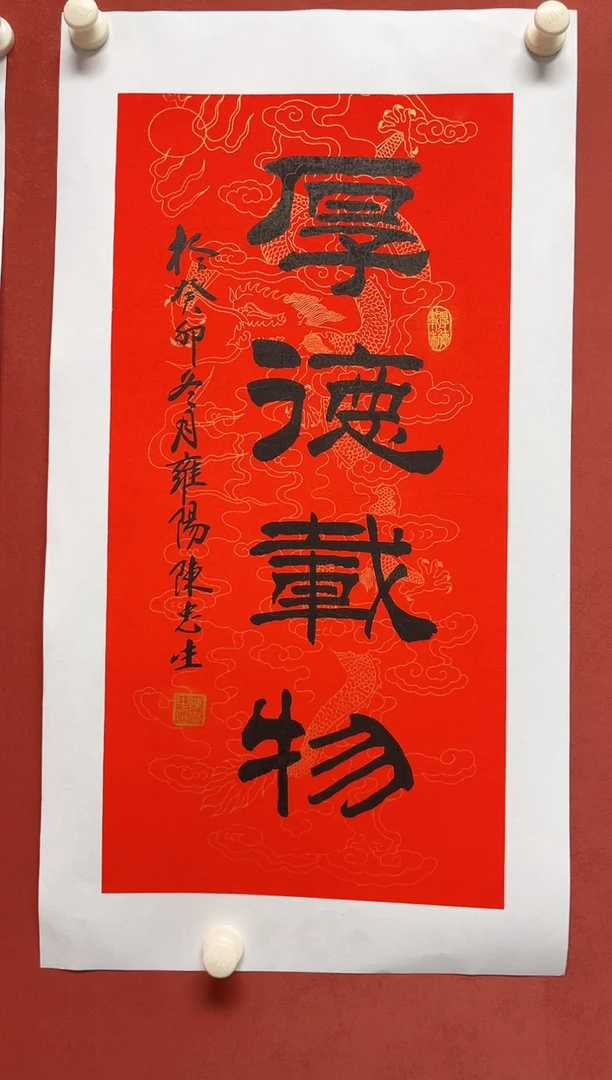 厚德載物
於癸卯冬月雍陽陳志生